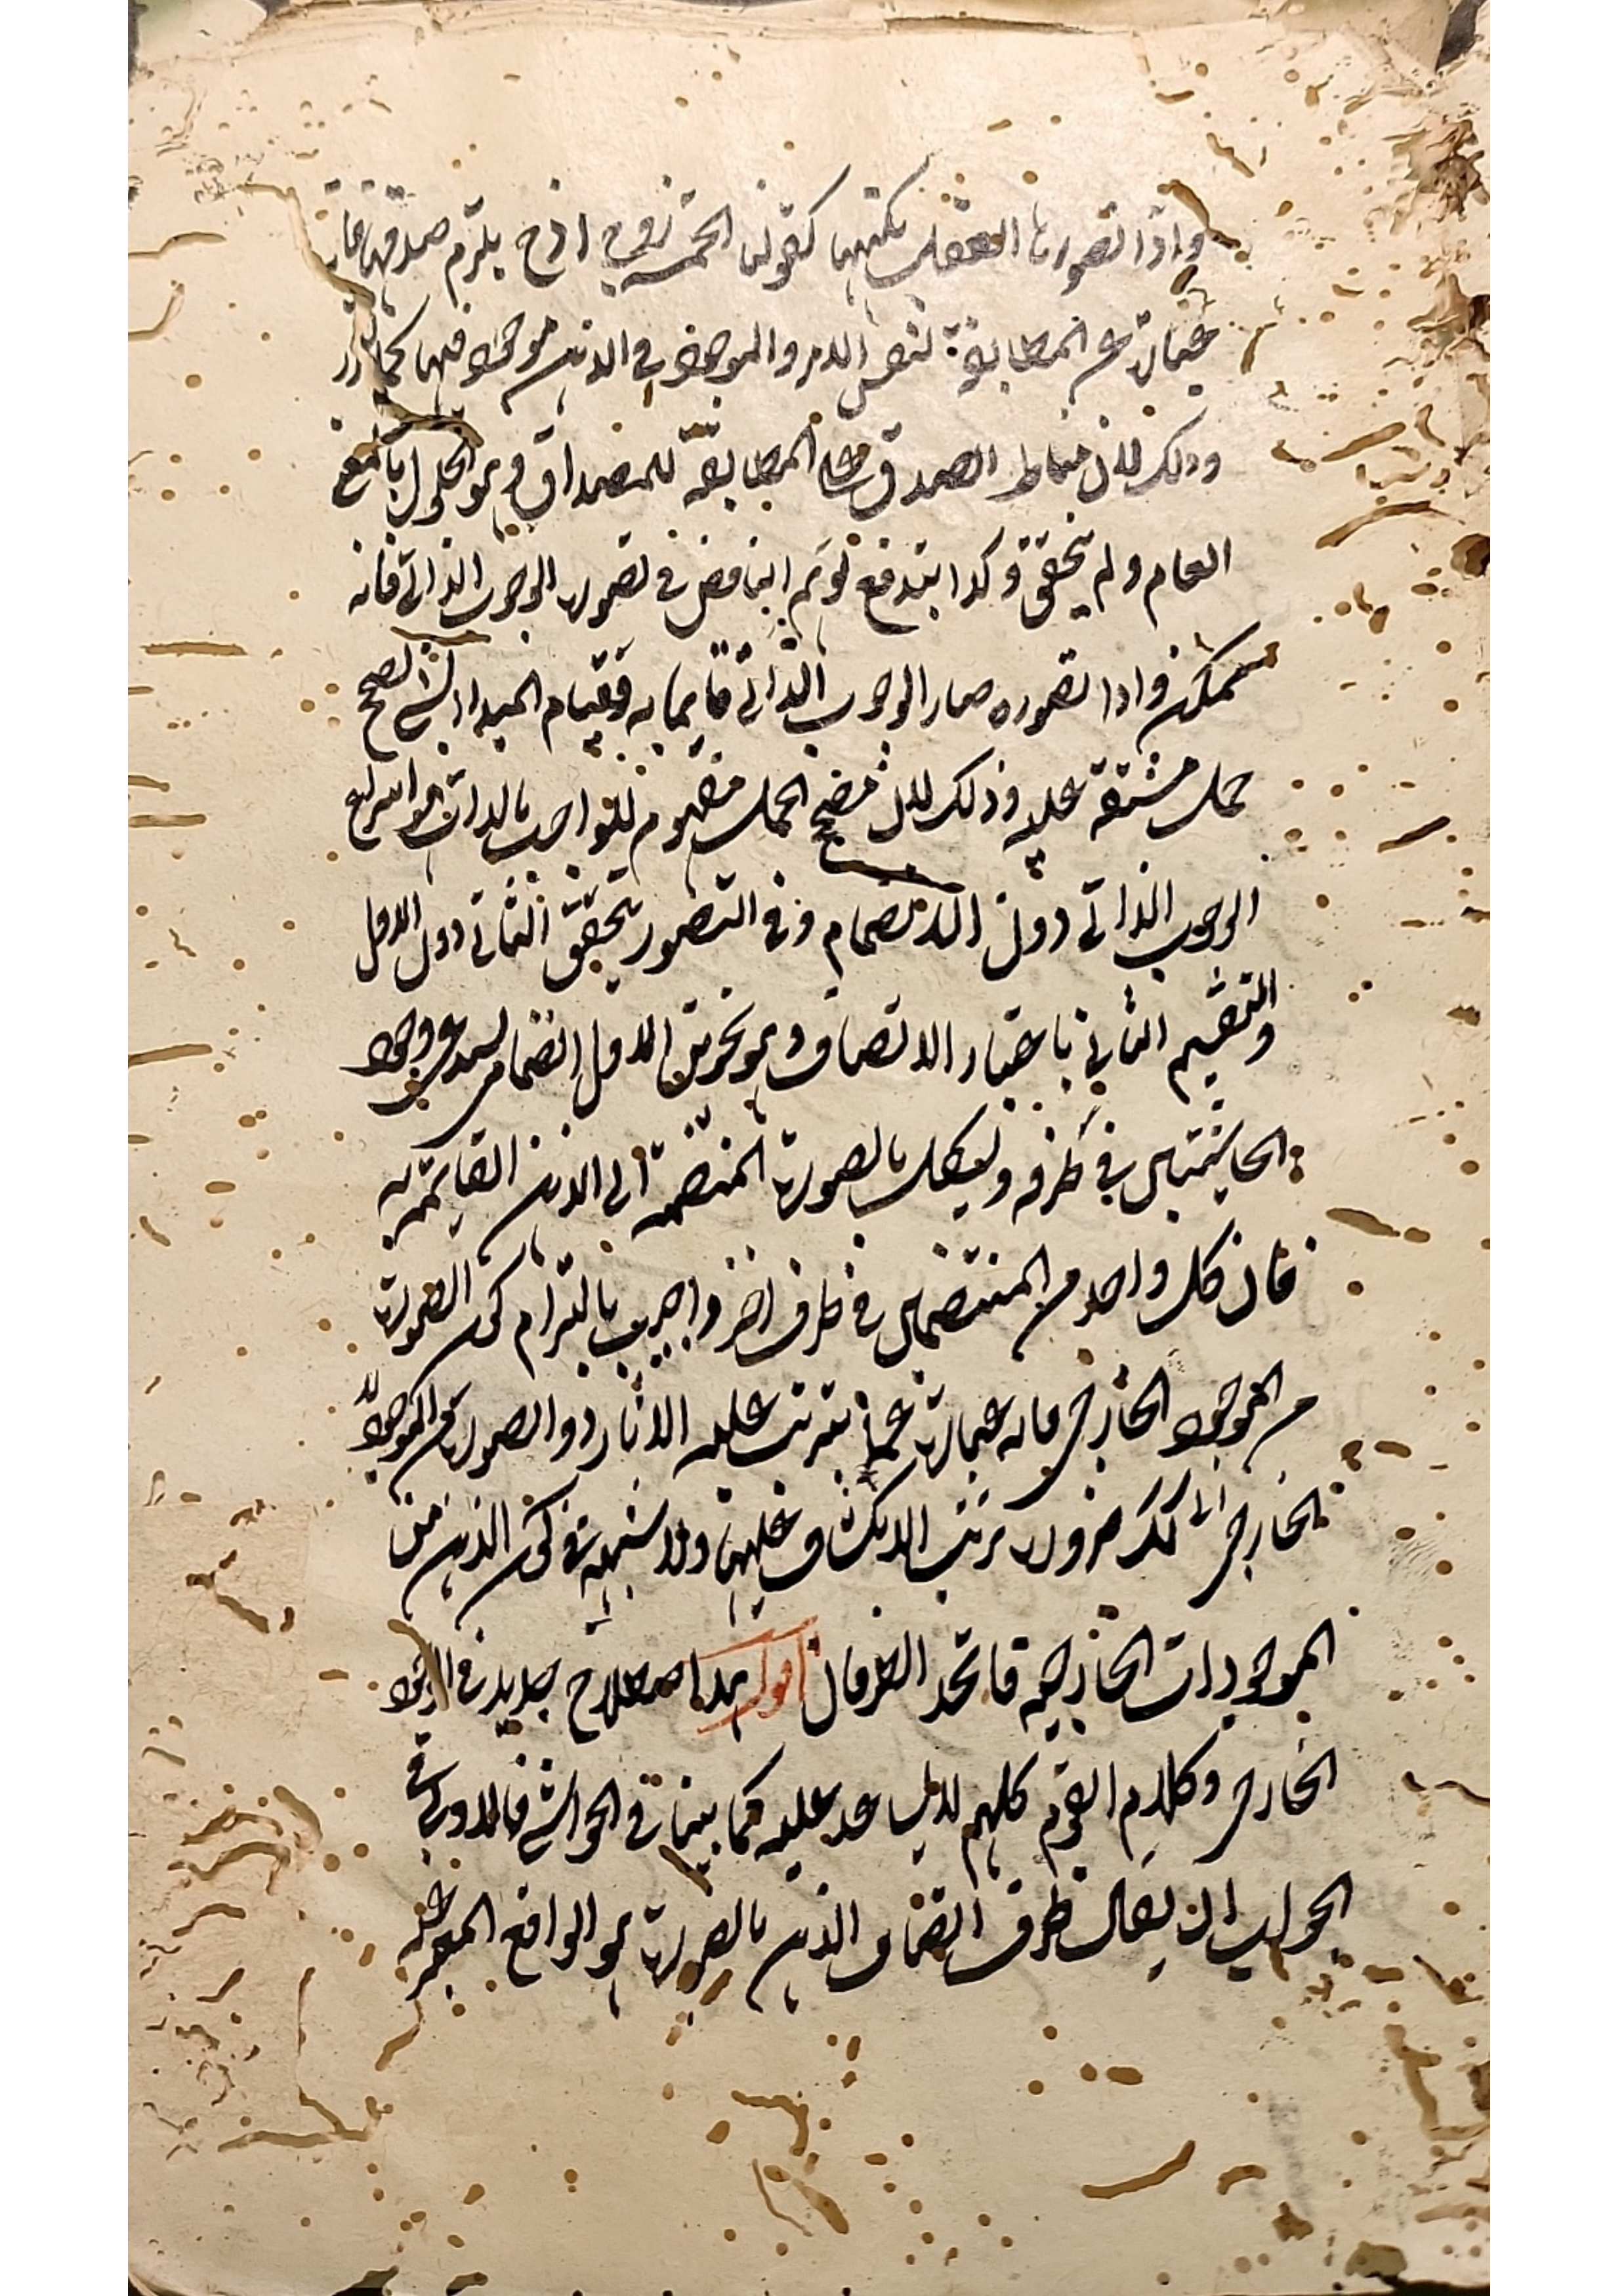 واذا تصورنا العقل بكنهها كقولنا الخمسة زوج اذح يلزم صدقها فانه
عبارة عن المطابقة لنفس الامر والموجود في الذهن موجود فيها كما
وذلك لان مناط الصدق المطابقة للمصداق وهو الحلول بالمعنى
العام ولم يتحقق وكذا يندفع توهم التناقض في تصور الوجوب الذاتي فانه
ممكن واذا تصوره صار الوجوب الذاتي قايما به وقيام المبدا بشئ يصحح
حمل مشتقه عليه وذلك لان مصحح الحمل مفهوم الواجب بالذات هو انتزاع
الوجوب الذاتي دون الانضمام وفي التصور يتحقق الثاني دون الاول
والتقسيم الثاني باعتبار الاتصاف وهو نحوين الاول انضمامي يستدعي وجود
الحاشيتين في ظرفه ويشكل بالصورة المنضمة الى الذهن القايمة به
فان كل واحد من المنتضمين في ظرف اخر واجيب بالتزام كون الصورة
من الموجود الخارجي فانه عبارة عما يترتب عليه الاثار والصورة من الموجود
الخارجي كذلك ضرورة ترتب الانكشاف عليها ولا شبهة في كون الذهن من
الموجودات الخارجية فاتحد الظرفان اقول هذا اصطلاح جديد في الوجود
الخارجي وكلام القوم كلهم لا يساعد عليه كما بينا في الحواشي فالاولى في
الجواب ان يقال ظرف اتصاف الذهن بالصورة هو الواقع المعبر عنه